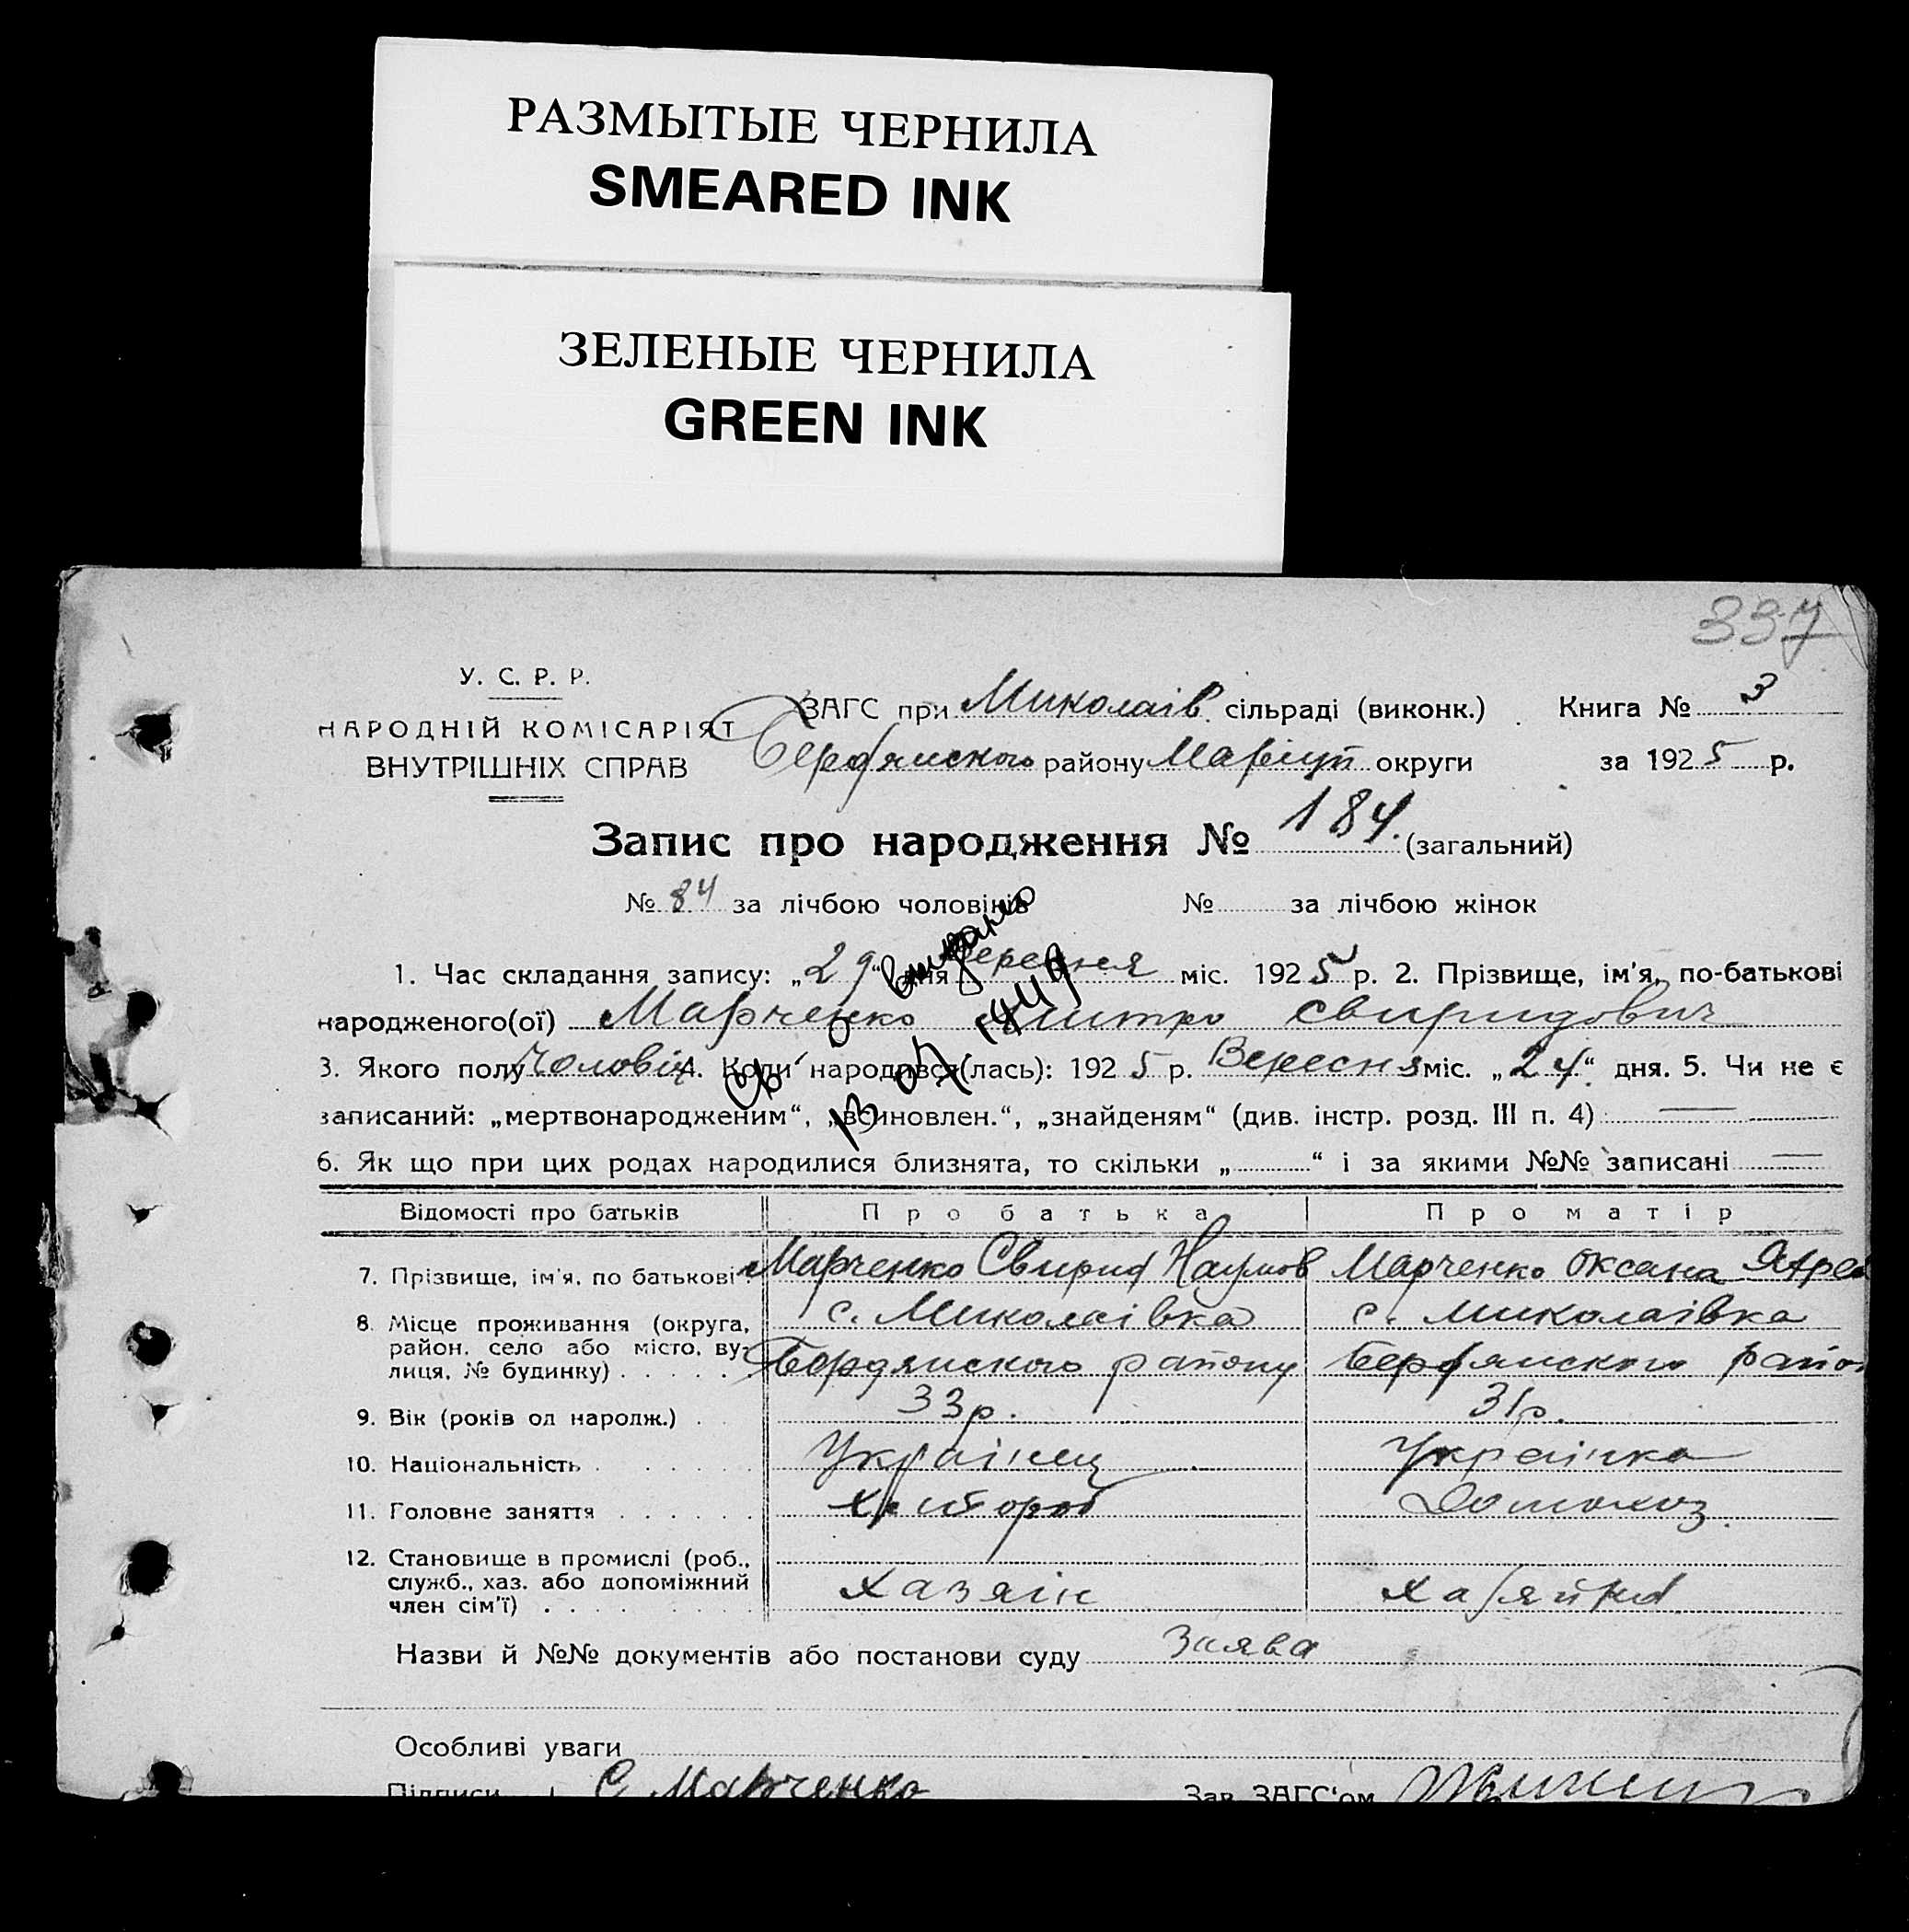 РАЗМЫТЫЕ ЧЕРНИЛА
SMEARED INK
ЗЕЛЕНЫЕ ЧЕРНИЛА
GREEN INK
337
У. С. Р. Р.
НАРОДНІЙ КОМІСАРІЯТ
ВНУТРІШНІХ СПРАВ
ЗАГС при Миколаів. сільраді (виконк.) Книга № 3
Бердянского району Маріуп округи за 1925 р.
Запис про народження № 184. (загальний)
№ 84 за лічбою чоловіків № за лічбою жінок
1. Час складання запису: „29“ дня Вересня міс. 1925 р. 2. Прізвище, ім'я, по-батькові
народженого(ої) Марченко Дмитро Свиридович
3. Якого полу Чоловіч 4. Коли народився(лась): 1925 р. Вересня міс. „24“ дня. 5. Чи не є
записаний: „мертвонародженим“, „всиновлен.“, „знайденям“ (див. інстр. розд. III п. 4)
6. Як що при цих родах народилися близнята, то скільки „ “ і за якими №№ записані
Відомості про батьків Про батька Про матір
7. Прізвище, ім'я, по батькові Марченко Свирид Наумов Марченко Оксана
8. Місце проживання (округа, с. Миколаівка с. Миколаівка
район, село або місто, ву- Бердянского району Бердянского район
лиця, № будинку)
9. Вік (років од народж.) 33р. 31р.
10. Національність Украінец Украінка
11. Головне заняття Хлібороб Домохоз.
12. Становище в промислі (роб.,
служб., хаз. або допоміжний Хазяін Хазяйка
член сім'ї)
Назви й №№ документів або постанови суду Заява
Особливі уваги
Підписи С Марченко Зав. ЗАГС'ом